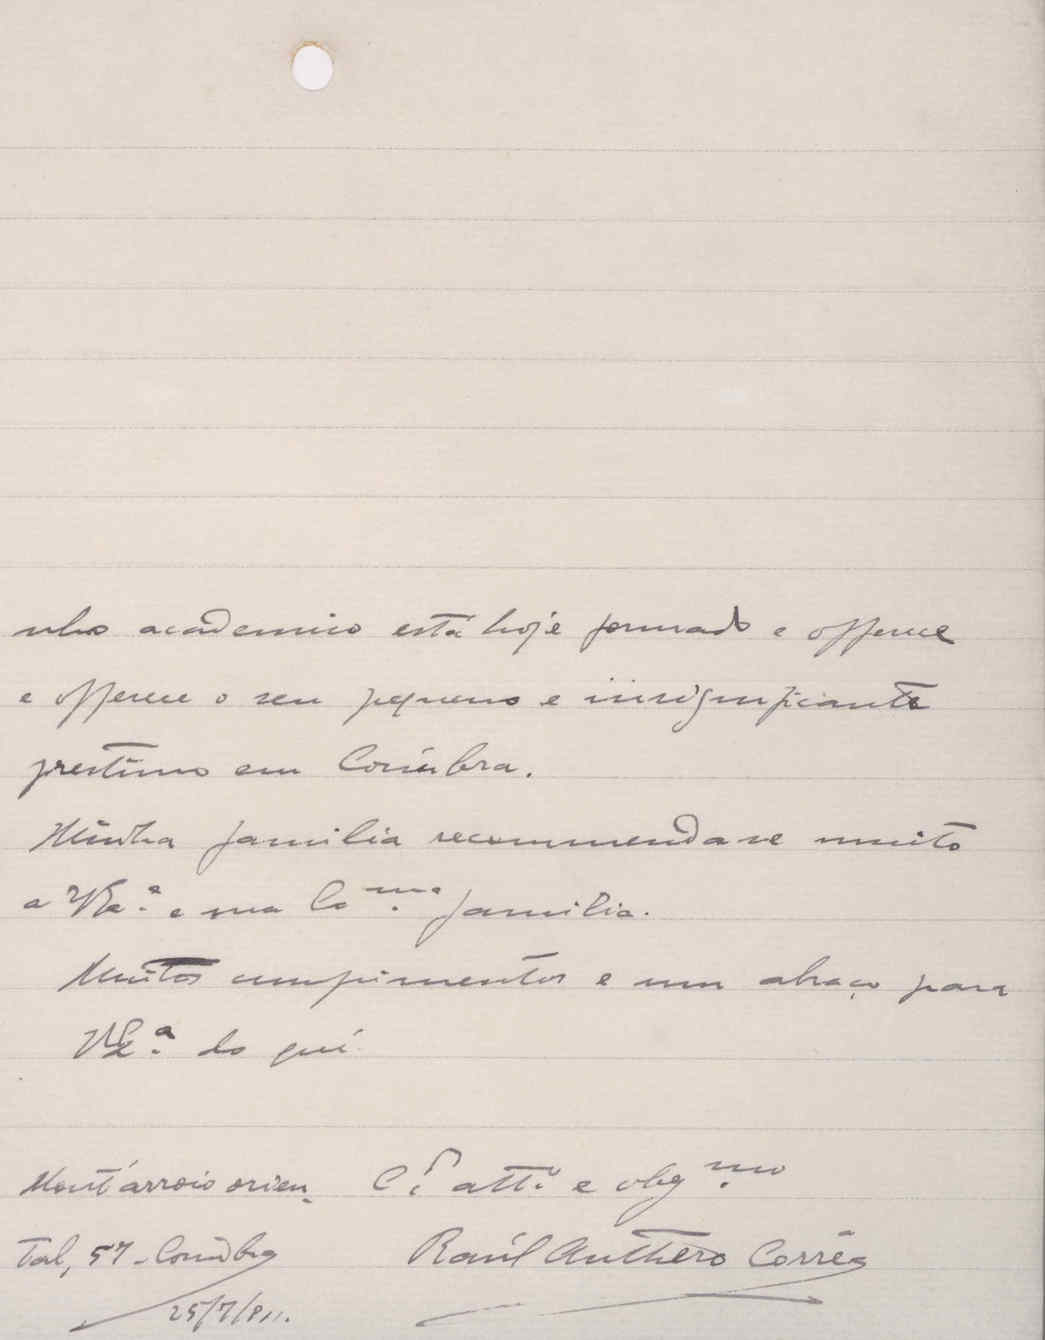 nho academico está hoje formado e offerece
e offerece o seu pequeno e insignificante
prestimo em Coimbra.
Minha familia recommenda-se muito
a V. Ex.ª e sua Ex.ma familia.
Muitos cumprimentos e um abraço para
V. Ex.ª do que é
Mont'arroio orien-
tal, 57 - Coimbra
25/7/911.
C.º att.º e obg.mo
Raúl Anthero Corrêa